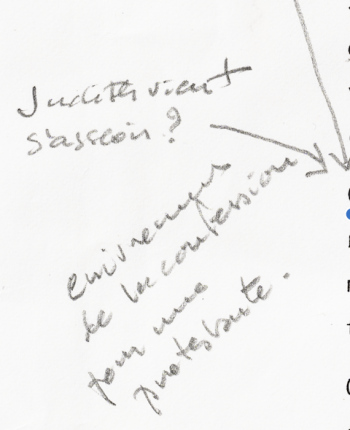 Judith vient
s'asseoir ?
enivrement
de la confession
pour une
protestante.